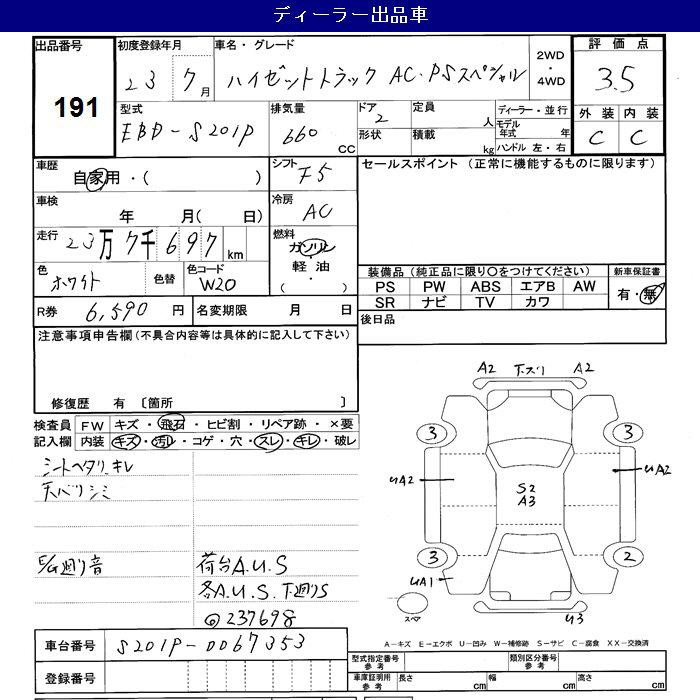 ディーラー出品車
出品番号
191
初度登録年月
23 7月
車名・グレード
ハイゼットトラック AC・PSスペシャル
2WD
・
4WD
評価点
3.5
外装 内装
C C
型式
EBD-S201P
排気量
660 CC
ドア
2
形状
定員
人
積載
kg
ディーラー・並行
モデル年式 年
ハンドル 左・右
車歴
自家用・( )
シフト
F5
車検
年 月( 日)
冷房
AC
走行
23万7千697km
燃料
ガソリン
・
軽油
・
( )
色
ホワイト
色替
色コード
W20
R券 6,590円
名変期限 月 日
セールスポイント (正常に機能するものに限ります)
装備品 (純正品に限り○をつけてください)
PS PW ABS エアB AW
SR ナビ TV カワ
新車保証書
有・無
後日品
注意事項申告欄(不具合内容等は具体的に記入して下さい)
修復歴 有 〔箇所 〕
検査員
記入欄
FW キズ・飛石・ヒビ割・リペア跡・×要
内装 キズ・汚レ・コゲ・穴・スレ・キレ・破レ
シートヘタリ、キレ
天バリシミ
E/G廻り音
荷台A.U.S
各A.U.S.下廻りS
◎237698
A2 下スリ A2
3 3
UA2 UA2
S2
A3
3 2
UA1
スペア
U3
A-キズ E-エクボ U-凹み W-補修跡 S-サビ C-腐食 XX-交換済
車台番号 S201P-0067353
登録番号
型式指定番号
参考
類別区分番号
参考
車庫証明用
参考
長さ cm
幅 cm
高さ cm